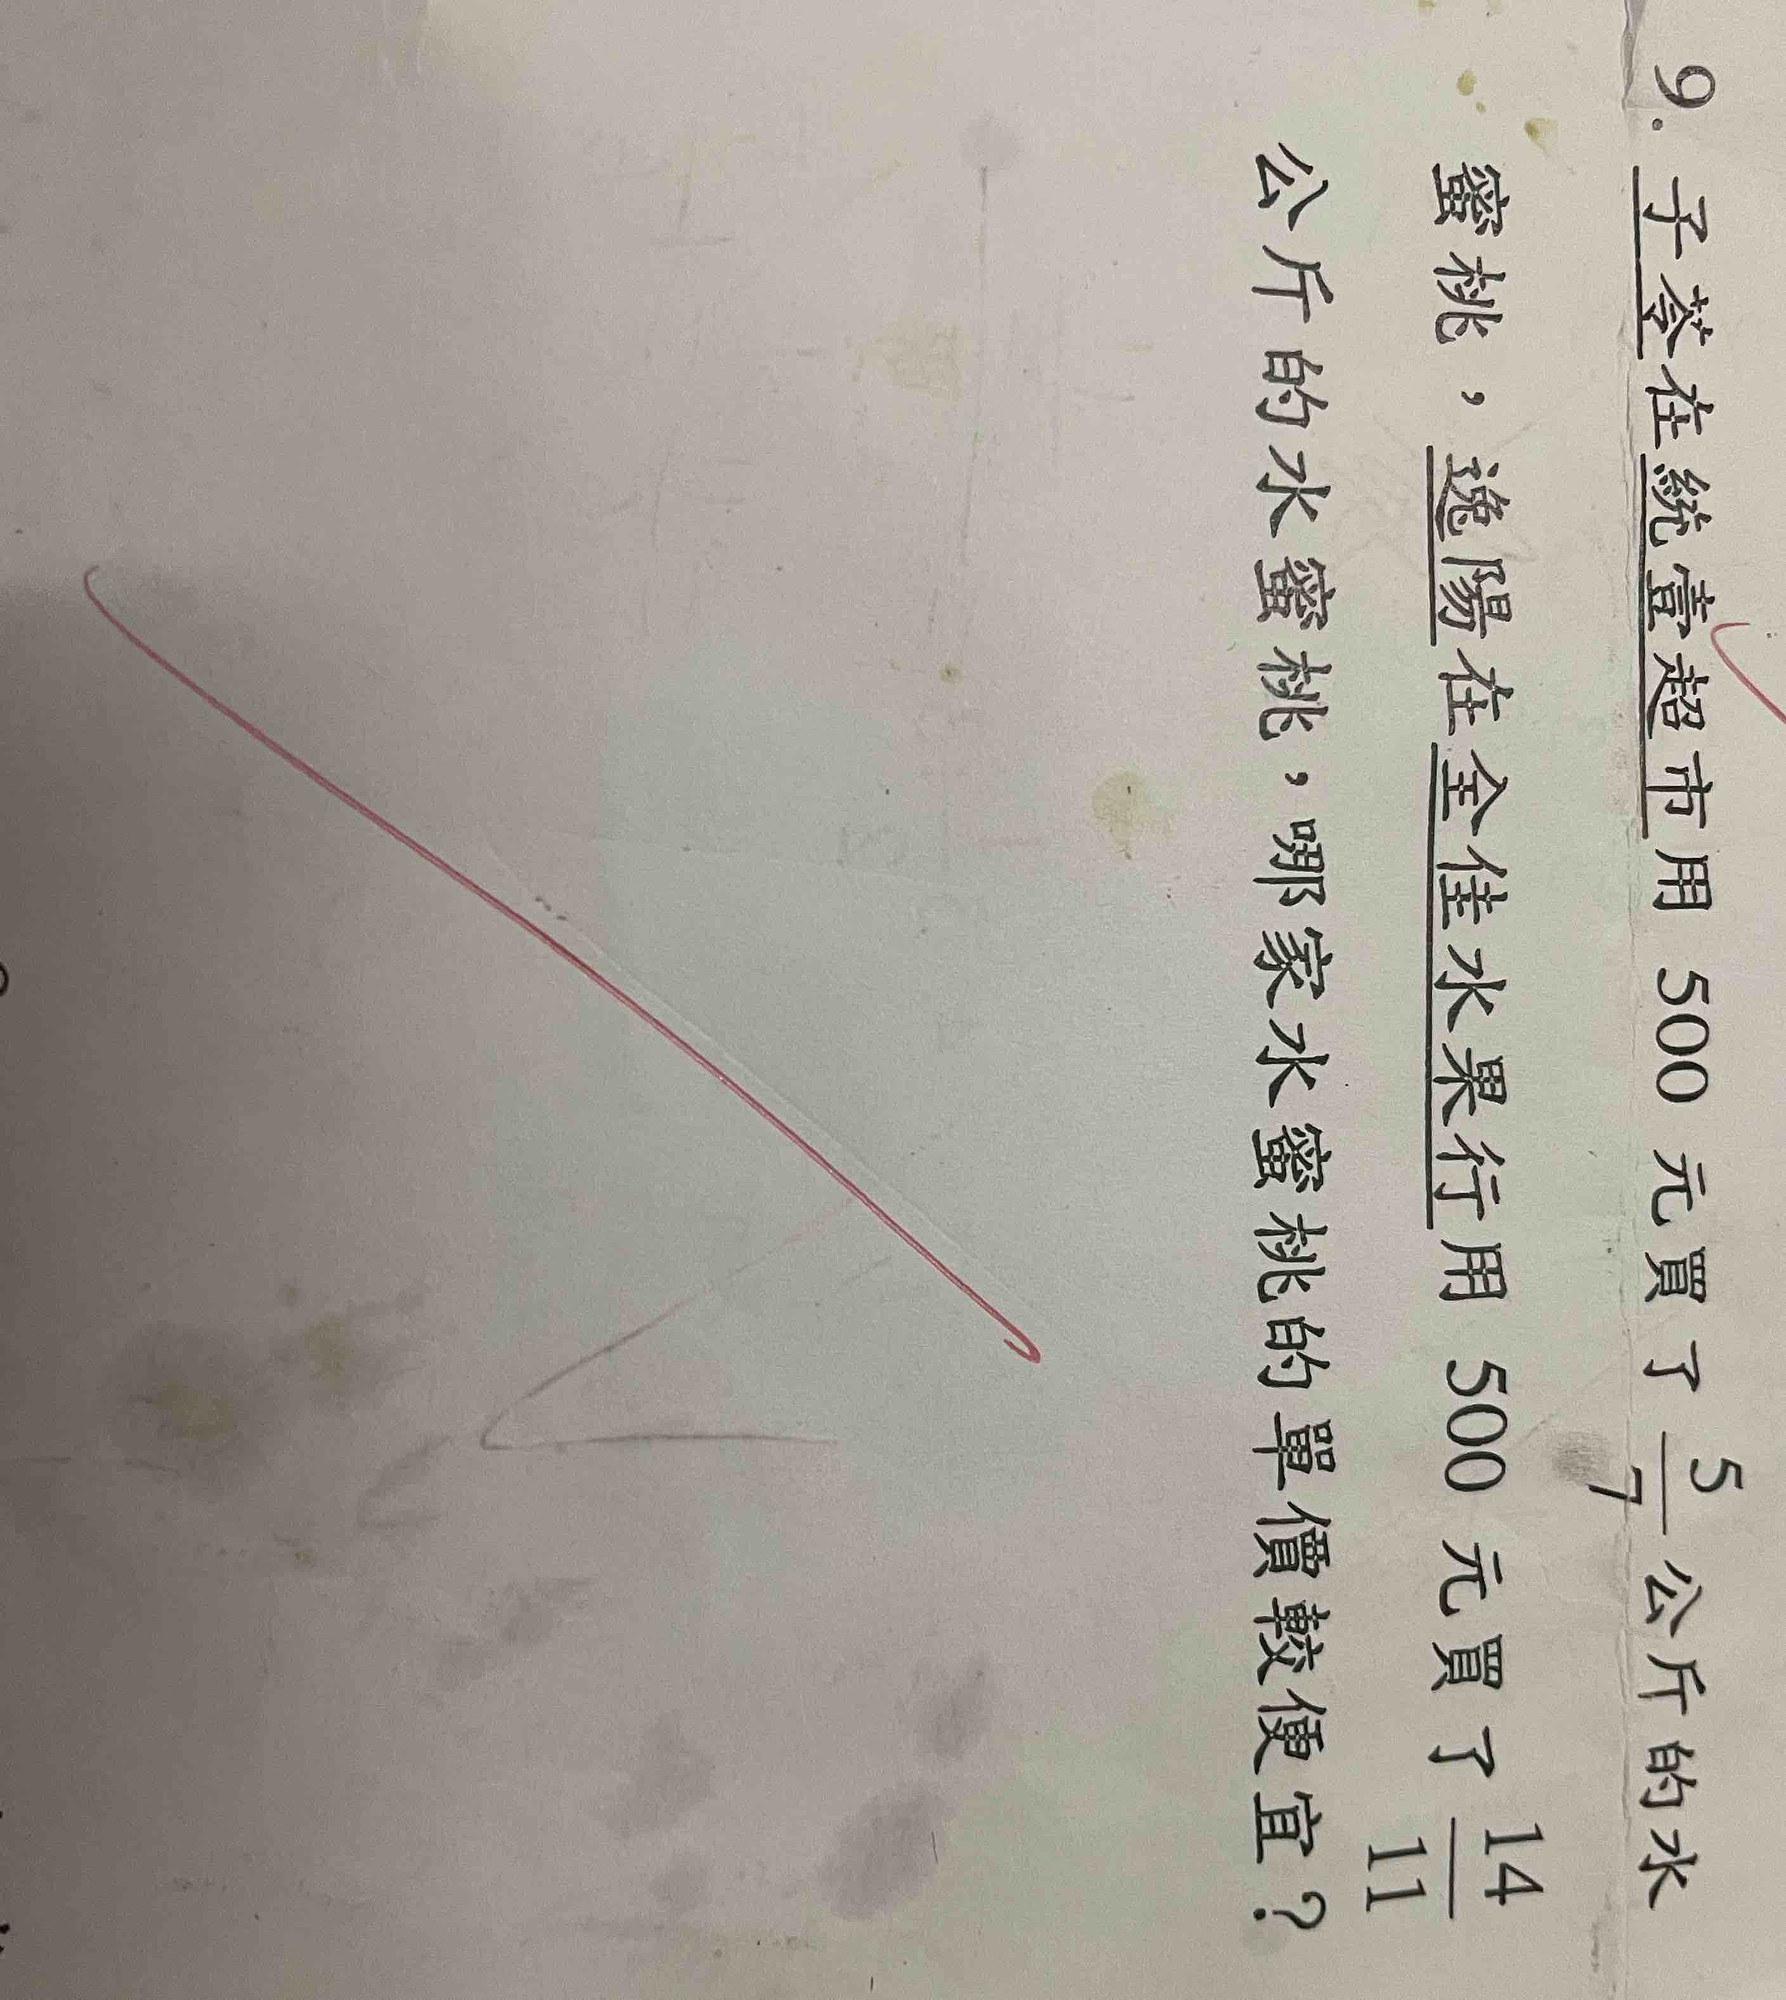 9. 子荃在統壹超市用 500 元買了 5/7 公斤的水
蜜桃，逸陽在全佳水果行用 500 元買了 14/11
公斤的水蜜桃，哪家水蜜桃的單價較便宜？